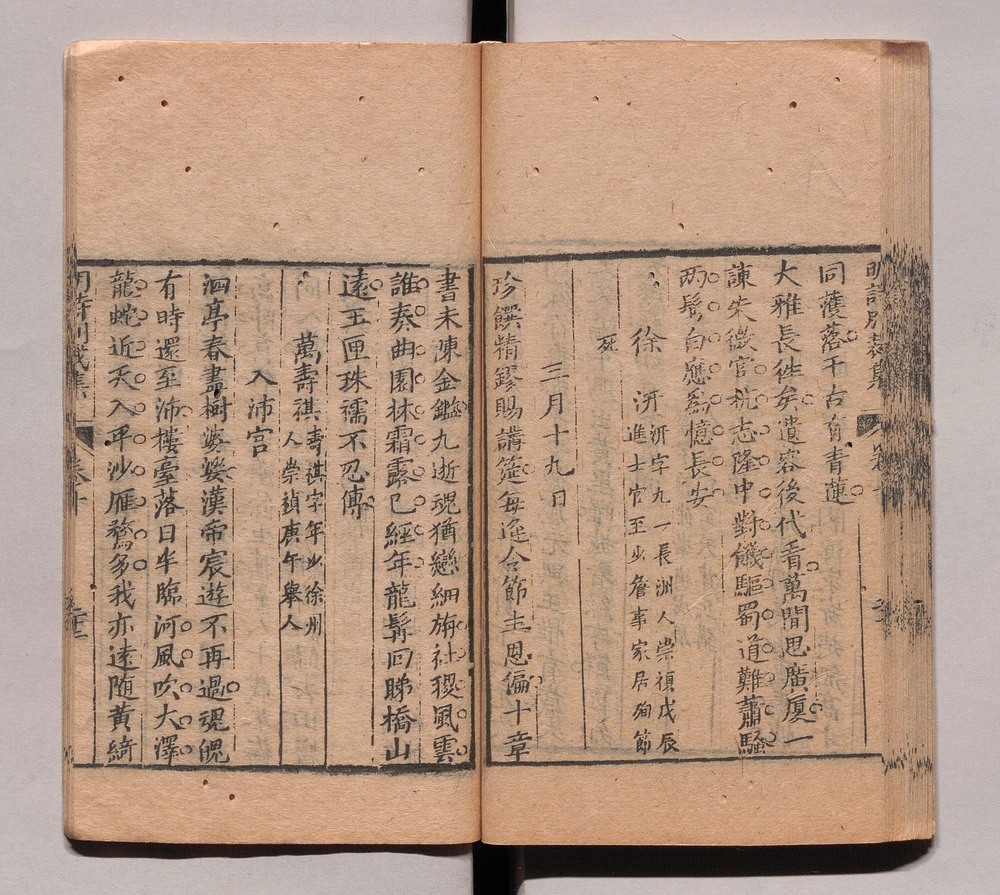 明詩別裁集
卷十
同護落千古有青蓮
大雅長徃矣遺容後代看萬間思廣廈一
諫失微官抗志隆中對饑驅蜀道難蕭騷
兩鬂白應爲憶長安
徐汧 汧字九一長洲人崇禎戊辰
進士官至少詹事家居殉節
死
三月十九日
珍饌精鏐賜講筵每逢令節主恩偏十章
書未陳金鑑九逝魂猶戀細旃社稷風雲
誰奏曲園林霜露已經年龍髯回睇橋山
遠玉匣珠襦不忍傳
萬壽祺 壽祺字年少徐州
人崇禎庚午舉人
入沛宫
泗亭春盡樹婆娑漢帝宸遊不再過魂魄
有時還至沛樓臺落日半臨河風吹大澤
龍蛇近天入平沙雁鶩多我亦遠隨黃綺
明詩別裁集
卷十